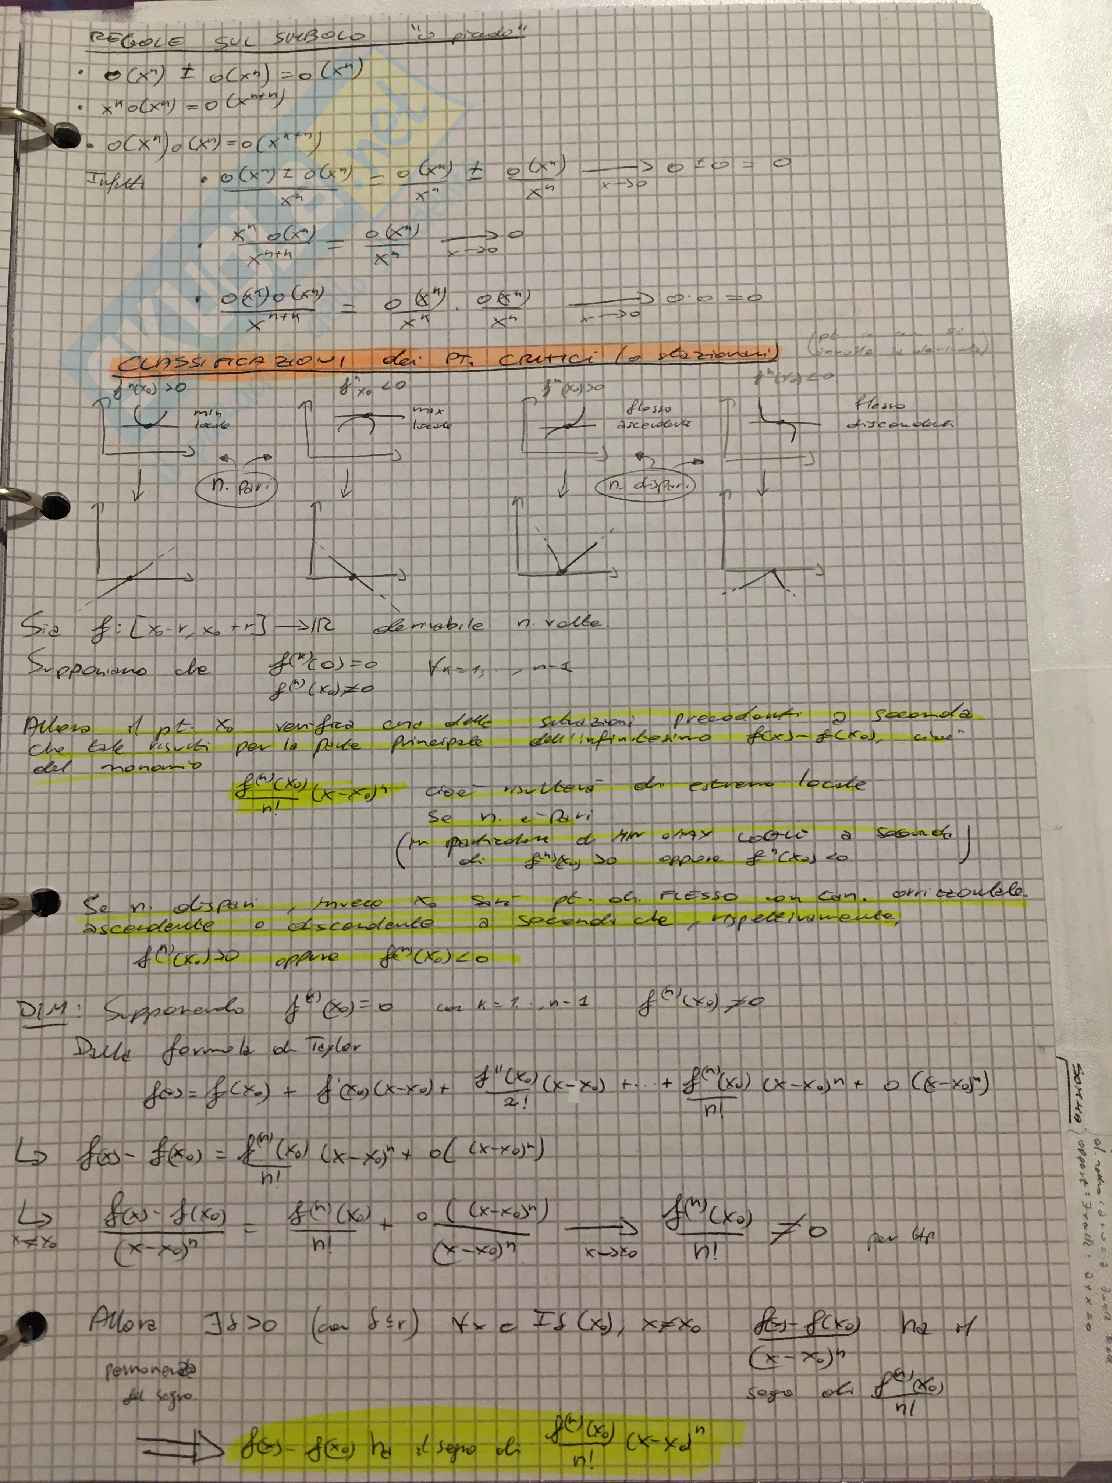 REGOLE SUL SIMBOLO "o piccolo"
• o(xⁿ) ± o(xⁿ) = o(xⁿ)
• xⁿ o(xⁿ) = o(xⁿ⁺ⁿ)
• o(xⁿ) o(xⁿ) = o(xⁿ⁺ⁿ)
Infatti • o(xⁿ) ± o(xⁿ) / xⁿ = o(xⁿ)/xⁿ ± o(xⁿ)/xⁿ → x→0 0 ± 0 = 0
• xⁿ o(xⁿ) / xⁿ⁺ⁿ = o(xⁿ)/xⁿ → x→0 0
• o(xⁿ) o(xⁿ) / xⁿ⁺ⁿ = o(xⁿ)/xⁿ · o(xⁿ)/xⁿ → x→0 0·0 = 0
CLASSIFICAZIONI dei PT. CRITICI (o stazionari)
fⁿ(x₀) > 0 fⁿx₀ < 0 fⁿ(x₀) > 0 fⁿ(x₀) < 0
min locale max locale flesso ascendente flesso discendente
n. pari n. dispari
Sia f: [x₀-r, x₀+r] → ℝ derivabile n. volte
Supponiamo che f⁽ᵏ⁾(0) = 0 ∀k = 1, ..., n-1
f⁽ⁿ⁾(x₀) ≠ 0
Allora il pt. x₀ verifica una delle situazioni precedenti a seconda
che tale risulti per la parte principale dell'infinitesimo f(x) - f(x₀), cioè
del monomio
f⁽ⁿ⁾(x₀)/n! (x-x₀)ⁿ cioè risulterà di estremo locale
Se n. è pari
(in particolare di MIN o MAX LOCALE a seconda
di f⁽ⁿ⁾(x₀) > 0 oppure fⁿ(x₀) < 0)
Se n. dispari, invece x₀ sarà pt. di FLESSO con tan. orizzontale
ascendente o discendente a seconda che, rispettivamente,
f⁽ⁿ⁾(x₀) > 0 oppure f⁽ⁿ⁾(x₀) < 0
DIM: Supponendo f⁽ᵏ⁾(x₀) = 0 con k = 1...n-1 f⁽ⁿ⁾(x₀) ≠ 0
Dalla formula di Taylor
f(x) = f(x₀) + f'(x₀)(x-x₀) + f''(x₀)/2! (x-x₀) + ... + f⁽ⁿ⁾(x₀)/n! (x-x₀)ⁿ + o((x-x₀)ⁿ)
↳ f(x) - f(x₀) = f⁽ⁿ⁾(x₀)/n! (x-x₀)ⁿ + o((x-x₀)ⁿ)
↳ x≠x₀ f(x) - f(x₀) / (x-x₀)ⁿ = f⁽ⁿ⁾(x₀)/n! + o((x-x₀)ⁿ)/(x-x₀)ⁿ → x→x₀ f⁽ⁿ⁾(x₀)/n! ≠ 0 per Hp
Allora ∃δ > 0 (con δ ≤ r) ∀x ∈ Iδ(x₀), x ≠ x₀ f(x) - f(x₀) / (x-x₀)ⁿ ha il
permanenza
del segno
segno di f⁽ⁿ⁾(x₀)/n!
⟹ f(x) - f(x₀) ha il segno di f⁽ⁿ⁾(x₀)/n! (x-x₀)ⁿ